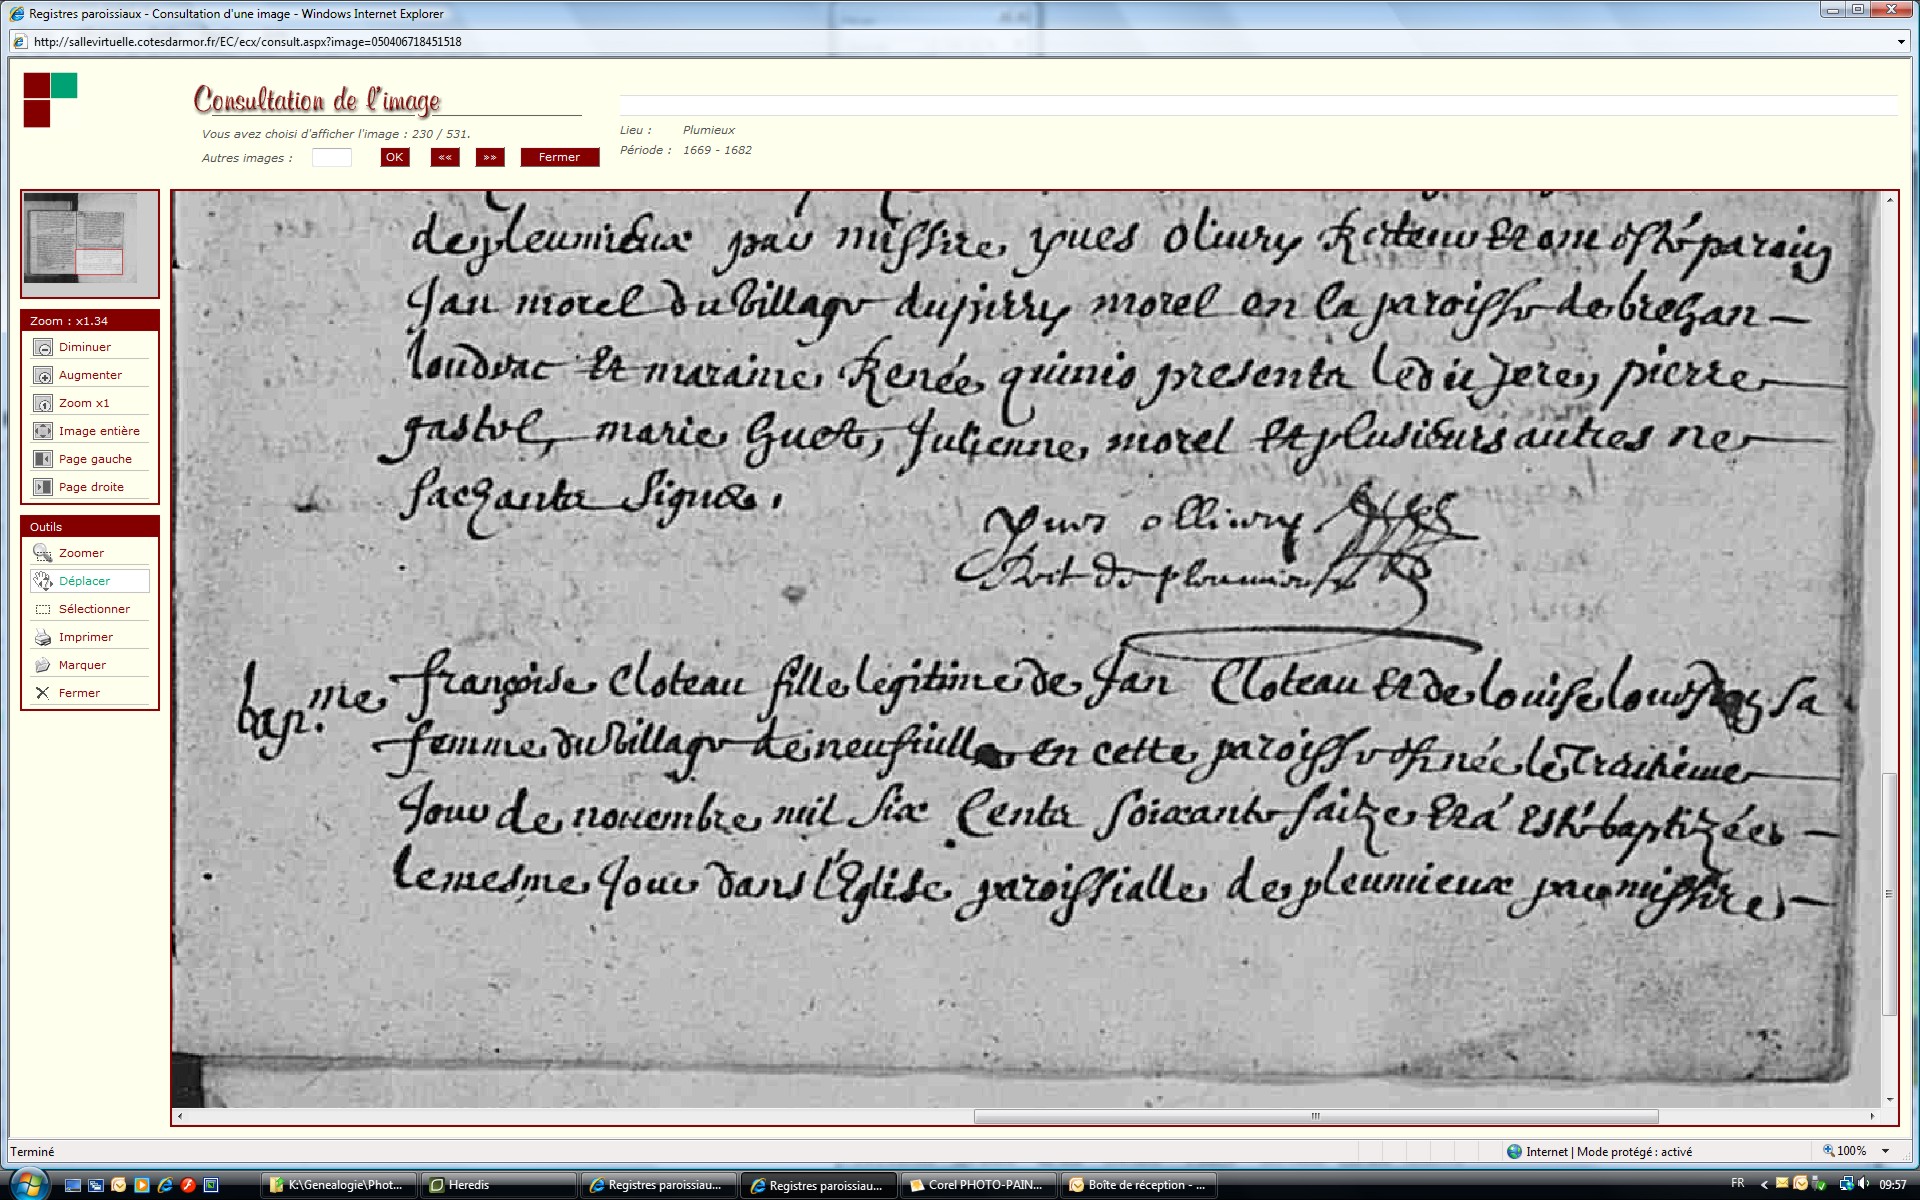 Registres paroissiaux - Consultation d'une image - Windows Internet Explorer
http://sallevirtuelle.cotesdarmor.fr/EC/ecx/consult.aspx?image=050406718451518
Consultation de l'image
Vous avez choisi d'afficher l'image : 230 / 531.
Autres images :
OK
««
»»
Fermer
Lieu : Plumieux
Période : 1669 - 1682
Zoom : x1.34
Diminuer
Augmenter
Zoom x1
Image entière
Page gauche
Page droite
Outils
Zoomer
Déplacer
Sélectionner
Imprimer
Marquer
Fermer
de pleumieux par missire yues oliury parain
Jan morel du village du pirry morel en la paroisse de brehan
loudeac et maraine Renée quinio presents ledit pere, pierre
gastel, marie huet, Julienne morel et plusieurs autres ne
sachants signer,
yues olliury
Rect de ploumieux
bap.me
françoise Cloteau fille legitime de Jan Cloteau et de louise sa
femme du village de neufuille en cette paroisse née le traisieme
Jour de nouembre mil six Cents soixante saitze et a esté baptizée
le mesme Jour dans l'Eglise paroissialle de pleumieux par missire
Terminé
Internet | Mode protégé : activé
100%
K:\Genealogie\Phot...
Heredis
Registres paroissiau...
Registres paroissiau...
Corel PHOTO-PAIN...
Boîte de réception - ...
FR
09:57